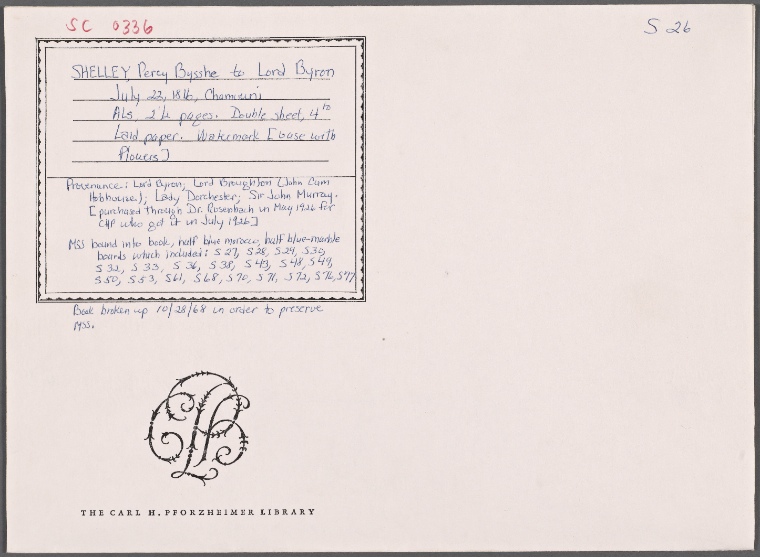 SC 0336
S 26
SHELLEY, Percy Bysshe to Lord Byron
July 22, 1816, Chamouni
ALs, 2¼ pages. Double sheet, 4to
Laid paper. Watermark [Vase with
Flowers]
Provenance: Lord Byron; Lord Broughton (John Cam
Hobhouse); Lady Dorchester; Sir John Murray.
[purchased through Dr. Rosenbach in May 1926 for
CHP who got it in July 1926]
MSS bound into book, half blue morocco, half blue-marble
boards which included: S 27, S 28, S 29, S 30,
S 32, S 33, S 36, S 38, S 43, S 48, S 49,
S 50, S 53, S 61, S 68, S 70, S 71, S 72, S 76, S 77
Book broken up 10/28/68 in order to preserve
MSS.
THE CARL H. PFORZHEIMER LIBRARY